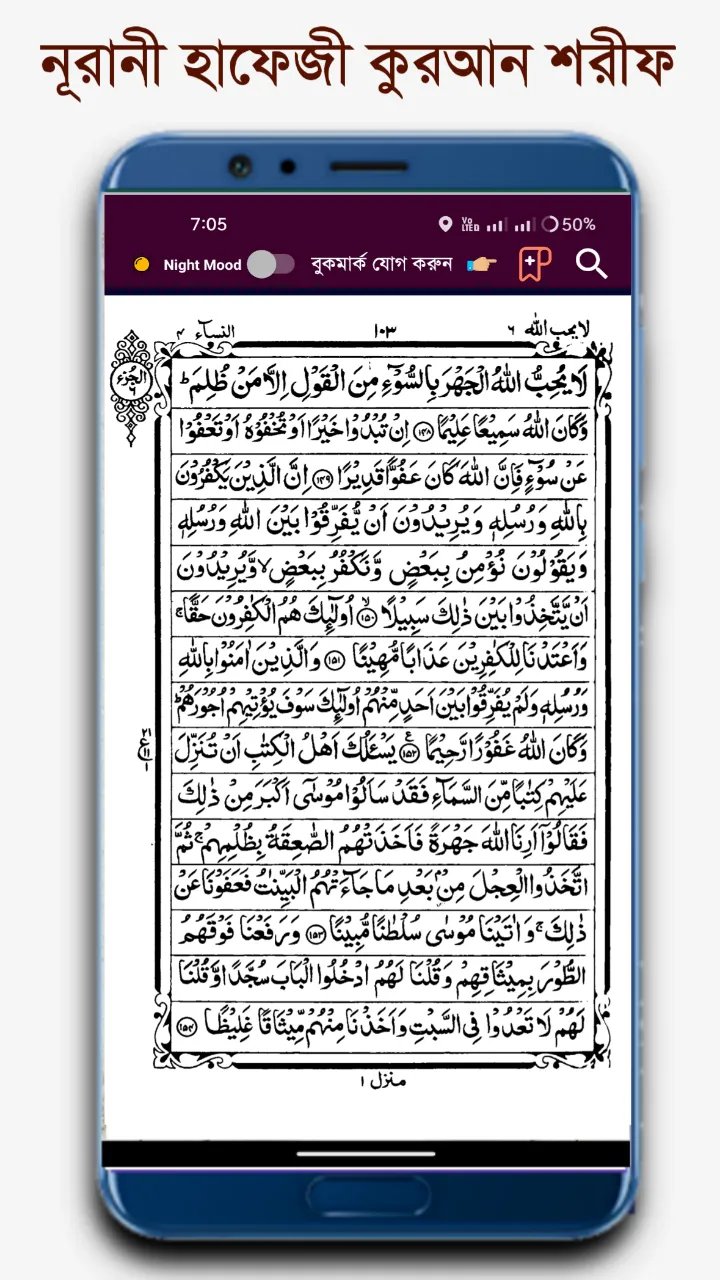 নূরানী হাফেজী কুরআন শরীফ
7:05
Vo LTED 50%
Night Mood বুকমার্ক যোগ করুন
لا یحب الله ۶ ۱۰۳ النسآء ۴
الجزء ۶
لَا یُحِبُّ اللّٰهُ الْجَهْرَ بِالسُّوْٓءِ مِنَ الْقَوْلِ اِلَّا مَنْ ظُلِمَ ؕ
وَكَانَ اللّٰهُ سَمِیْعًا عَلِیْمًا ﴿۱۴۸﴾ اِنْ تُبْدُوْا خَیْرًا اَوْ تُخْفُوْهُ اَوْ تَعْفُوْا
عَنْ سُوْٓءٍ فَاِنَّ اللّٰهَ كَانَ عَفُوًّا قَدِیْرًا ﴿۱۴۹﴾ اِنَّ الَّذِیْنَ یَكْفُرُوْنَ
بِاللّٰهِ وَرُسُلِهٖ وَیُرِیْدُوْنَ اَنْ یُّفَرِّقُوْا بَیْنَ اللّٰهِ وَرُسُلِهٖ
وَیَقُوْلُوْنَ نُؤْمِنُ بِبَعْضٍ وَّنَكْفُرُ بِبَعْضٍ ۙ وَّیُرِیْدُوْنَ
اَنْ یَّتَّخِذُوْا بَیْنَ ذٰلِكَ سَبِیْلًا ﴿۱۵۰﴾ۙ اُولٰٓئِكَ هُمُ الْكٰفِرُوْنَ حَقًّا ۚ
وَاَعْتَدْنَا لِلْكٰفِرِیْنَ عَذَابًا مُّهِیْنًا ﴿۱۵۱﴾ وَالَّذِیْنَ اٰمَنُوْا بِاللّٰهِ
وَرُسُلِهٖ وَلَمْ یُفَرِّقُوْا بَیْنَ اَحَدٍ مِّنْهُمْ اُولٰٓئِكَ سَوْفَ یُؤْتِیْهِمْ اُجُوْرَهُمْ ؕ
وَكَانَ اللّٰهُ غَفُوْرًا رَّحِیْمًا ﴿۱۵۲﴾ یَسْـَٔلُكَ اَهْلُ الْكِتٰبِ اَنْ تُنَزِّلَ
عَلَیْهِمْ كِتٰبًا مِّنَ السَّمَآءِ فَقَدْ سَاَلُوْا مُوْسٰۤی اَكْبَرَ مِنْ ذٰلِكَ
فَقَالُوْۤا اَرِنَا اللّٰهَ جَهْرَةً فَاَخَذَتْهُمُ الصّٰعِقَةُ بِظُلْمِهِمْ ۚ ثُمَّ
اتَّخَذُوا الْعِجْلَ مِنْۢ بَعْدِ مَا جَآءَتْهُمُ الْبَیِّنٰتُ فَعَفَوْنَا عَنْ
ذٰلِكَ ۚ وَاٰتَیْنَا مُوْسٰی سُلْطٰنًا مُّبِیْنًا ﴿۱۵۳﴾ وَرَفَعْنَا فَوْقَهُمُ
الطُّوْرَ بِمِیْثَاقِهِمْ وَقُلْنَا لَهُمُ ادْخُلُوا الْبَابَ سُجَّدًا وَّقُلْنَا
لَهُمْ لَا تَعْدُوْا فِی السَّبْتِ وَاَخَذْنَا مِنْهُمْ مِّیْثَاقًا غَلِیْظًا ﴿۱۵۴﴾
منزل ۱